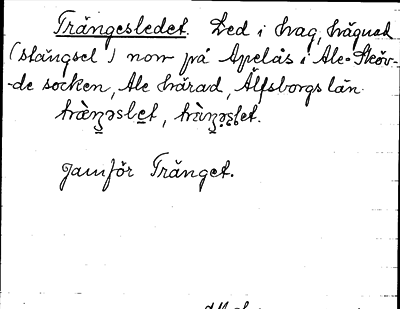 Trängesledet. Led i hag, hägnad
(stängsel) norr på Apelås i Ale-Sköv-
-de socken, Ale härad, Älfsborgs län.
Jämför Tränget.